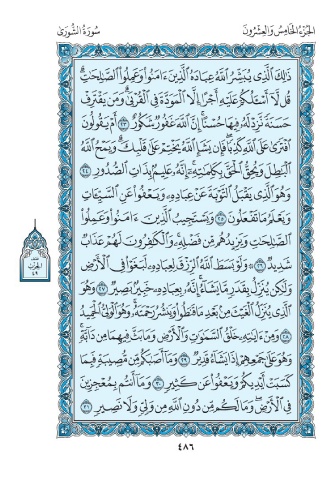 سُورَةُ الشُّورَىٰ الجُزْءُ الخَامِسُ وَالعِشْرُونَ
ذَٰلِكَ ٱلَّذِي يُبَشِّرُ ٱللَّهُ عِبَادَهُ ٱلَّذِينَ ءَامَنُواْ وَعَمِلُواْ ٱلصَّٰلِحَٰتِۗ
قُل لَّآ أَسۡـَٔلُكُمۡ عَلَيۡهِ أَجۡرًا إِلَّا ٱلۡمَوَدَّةَ فِي ٱلۡقُرۡبَىٰۗ وَمَن يَقۡتَرِفۡ
حَسَنَةٗ نَّزِدۡ لَهُۥ فِيهَا حُسۡنًاۚ إِنَّ ٱللَّهَ غَفُورٞ شَكُورٌ ٢٣ أَمۡ يَقُولُونَ
ٱفۡتَرَىٰ عَلَى ٱللَّهِ كَذِبٗاۖ فَإِن يَشَإِ ٱللَّهُ يَخۡتِمۡ عَلَىٰ قَلۡبِكَۗ وَيَمۡحُ ٱللَّهُ
ٱلۡبَٰطِلَ وَيُحِقُّ ٱلۡحَقَّ بِكَلِمَٰتِهِۦٓۚ إِنَّهُۥ عَلِيمُۢ بِذَاتِ ٱلصُّدُورِ ٢٤
وَهُوَ ٱلَّذِي يَقۡبَلُ ٱلتَّوۡبَةَ عَنۡ عِبَادِهِۦ وَيَعۡفُواْ عَنِ ٱلسَّيِّـَٔاتِ
وَيَعۡلَمُ مَا تَفۡعَلُونَ ٢٥ وَيَسۡتَجِيبُ ٱلَّذِينَ ءَامَنُواْ وَعَمِلُواْ
ٱلصَّٰلِحَٰتِ وَيَزِيدُهُم مِّن فَضۡلِهِۦۚ وَٱلۡكَٰفِرُونَ لَهُمۡ عَذَابٞ
شَدِيدٞ ٢٦ وَلَوۡ بَسَطَ ٱللَّهُ ٱلرِّزۡقَ لِعِبَادِهِۦ لَبَغَوۡاْ فِي ٱلۡأَرۡضِ
وَلَٰكِن يُنَزِّلُ بِقَدَرٖ مَّا يَشَآءُۚ إِنَّهُۥ بِعِبَادِهِۦ خَبِيرُۢ بَصِيرٞ ٢٧ وَهُوَ
ٱلَّذِي يُنَزِّلُ ٱلۡغَيۡثَ مِنۢ بَعۡدِ مَا قَنَطُواْ وَيَنشُرُ رَحۡمَتَهُۥۚ وَهُوَ ٱلۡوَلِيُّ ٱلۡحَمِيدُ
٢٨ وَمِنۡ ءَايَٰتِهِۦ خَلۡقُ ٱلسَّمَٰوَٰتِ وَٱلۡأَرۡضِ وَمَا بَثَّ فِيهِمَا مِن دَآبَّةٖۚ
وَهُوَ عَلَىٰ جَمۡعِهِمۡ إِذَا يَشَآءُ قَدِيرٞ ٢٩ وَمَآ أَصَٰبَكُم مِّن مُّصِيبَةٖ فَبِمَا
كَسَبَتۡ أَيۡدِيكُمۡ وَيَعۡفُواْ عَن كَثِيرٖ ٣٠ وَمَآ أَنتُم بِمُعۡجِزِينَ
فِي ٱلۡأَرۡضِۖ وَمَا لَكُم مِّن دُونِ ٱللَّهِ مِن وَلِيّٖ وَلَا نَصِيرٖ ٣١
الحِزْب
٤٩
٤٨٦